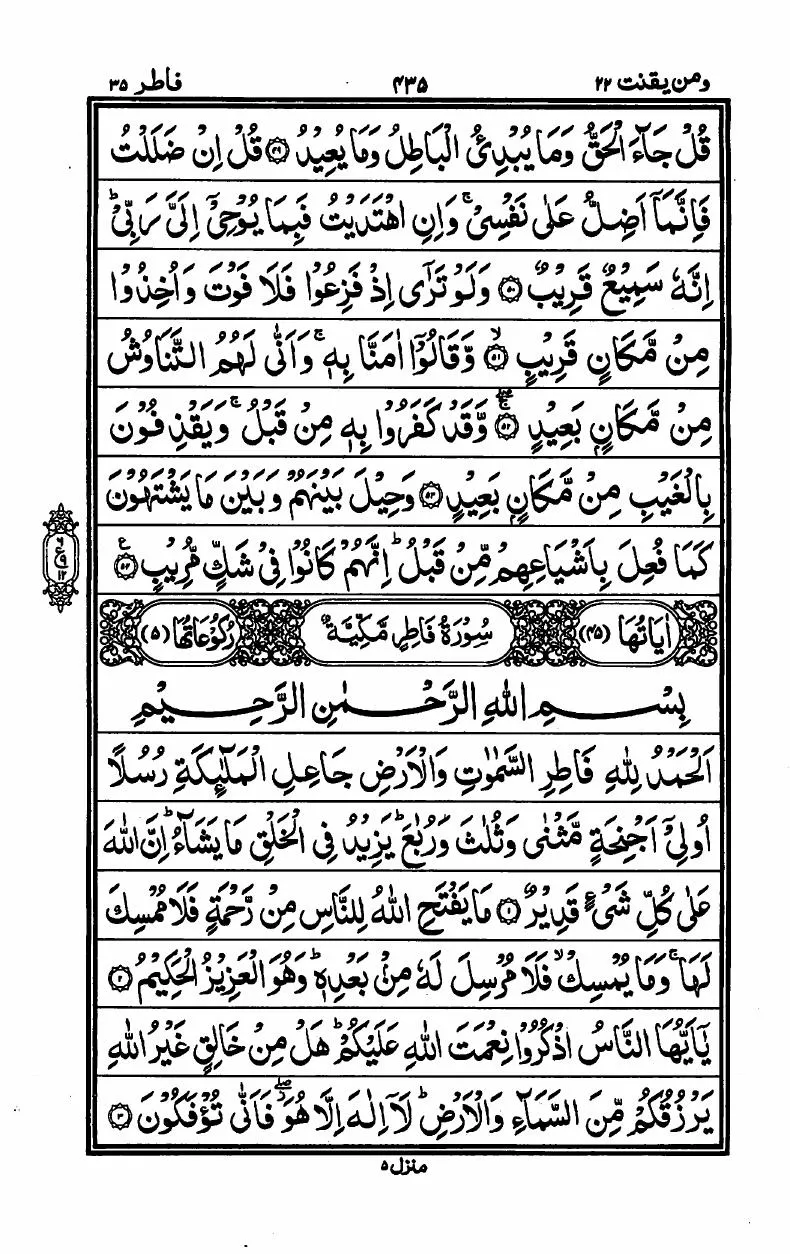 ومن يقنت ٢٢ ٤٣٥ فاطر ٣٥
قُلْ جَآءَ الْحَقُّ وَمَا يُبْدِئُ الْبَاطِلُ وَمَا يُعِيْدُ ﴿۴۹﴾ قُلْ اِنْ ضَلَلْتُ
فَاِنَّمَآ اَضِلُّ عَلٰى نَفْسِيْ ۚ وَاِنِ اهْتَدَيْتُ فَبِمَا يُوْحِيْٓ اِلَيَّ رَبِّيْ ؕ
اِنَّهٗ سَمِيْعٌ قَرِيْبٌ ﴿۵۰﴾ وَلَوْ تَرٰٓى اِذْ فَزِعُوْا فَلَا فَوْتَ وَاُخِذُوْا
مِنْ مَّكَانٍ قَرِيْبٍ ﴿۵۱﴾ۙ وَّقَالُوْٓا اٰمَنَّا بِهٖ ۚ وَاَنّٰى لَهُمُ التَّنَاوُشُ
مِنْ مَّكَانٍۭ بَعِيْدٍ ﴿۵۲﴾ۚۖ وَّقَدْ كَفَرُوْا بِهٖ مِنْ قَبْلُ ۚ وَيَقْذِفُوْنَ
بِالْغَيْبِ مِنْ مَّكَانٍۭ بَعِيْدٍ ﴿۵۳﴾ وَحِيْلَ بَيْنَهُمْ وَبَيْنَ مَا يَشْتَهُوْنَ
كَمَا فُعِلَ بِاَشْيَاعِهِمْ مِّنْ قَبْلُ ؕ اِنَّهُمْ كَانُوْا فِيْ شَكٍّ مُّرِيْبٍ ﴿۵۴﴾ ع
٦
ع ٩
١٢
اٰيَاتُهَا (۴۵) سُوْرَةُ فَاطِرٍ مَّكِّيَّةٌ رُكُوْعَاتُهَا (۵)
بِسْمِ اللهِ الرَّحْمٰنِ الرَّحِيْمِ
اَلْحَمْدُ لِلّٰهِ فَاطِرِ السَّمٰوٰتِ وَالْاَرْضِ جَاعِلِ الْمَلٰٓئِكَةِ رُسُلًا
اُولِيْٓ اَجْنِحَةٍ مَّثْنٰى وَثُلٰثَ وَرُبٰعَ ؕ يَزِيْدُ فِي الْخَلْقِ مَا يَشَآءُ ؕ اِنَّ اللهَ
عَلٰى كُلِّ شَيْءٍ قَدِيْرٌ ﴿۱﴾ مَا يَفْتَحِ اللهُ لِلنَّاسِ مِنْ رَّحْمَةٍ فَلَا مُمْسِكَ
لَهَا ۚ وَمَا يُمْسِكْ ۙ فَلَا مُرْسِلَ لَهٗ مِنْۢ بَعْدِهٖ ؕ وَهُوَ الْعَزِيْزُ الْحَكِيْمُ ﴿۲﴾
يٰٓاَيُّهَا النَّاسُ اذْكُرُوْا نِعْمَتَ اللهِ عَلَيْكُمْ ؕ هَلْ مِنْ خَالِقٍ غَيْرُ اللهِ
يَرْزُقُكُمْ مِّنَ السَّمَآءِ وَالْاَرْضِ ؕ لَآ اِلٰهَ اِلَّا هُوَ ۖ فَاَنّٰى تُؤْفَكُوْنَ ﴿۳﴾
منزل ۵